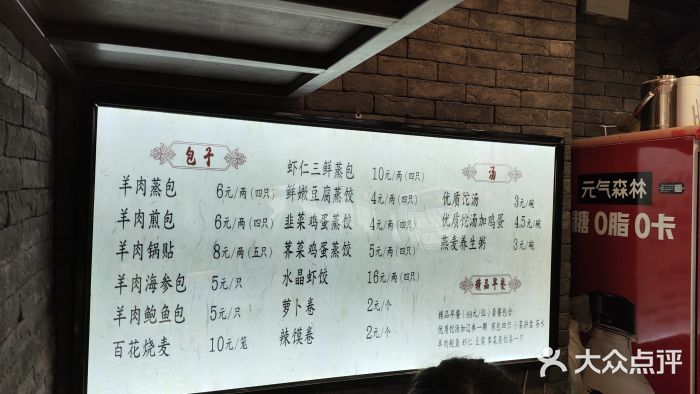 包子
羊肉蒸包 6元/两(四只)
羊肉煎包 6元/两(四只)
羊肉锅贴 8元/两(五只)
羊肉海参包 5元/只
羊肉鲍鱼包 5元/只
百花烧麦 10元/笼
虾仁三鲜蒸包 10元/两(四只)
鲜嫩豆腐蒸饺 4元/两(四只)
韭菜鸡蛋蒸饺 4元/两(四只)
荠菜鸡蛋蒸饺 5元/两(四只)
水晶虾饺 16元/两(四只)
萝卜卷 2元/个
辣馍卷 2元/个
汤
优质饹汤 3元/碗
优质饹汤加鸡蛋 4.5元/碗
燕麦养生粥 3元/碗
精品早餐
精品早餐(68元/位)套餐包含:
煎包四只 小菜拼盘 茶水
羊肉鲍鱼 虾仁 豆腐
元气森林
糖 0脂 0卡
大众点评